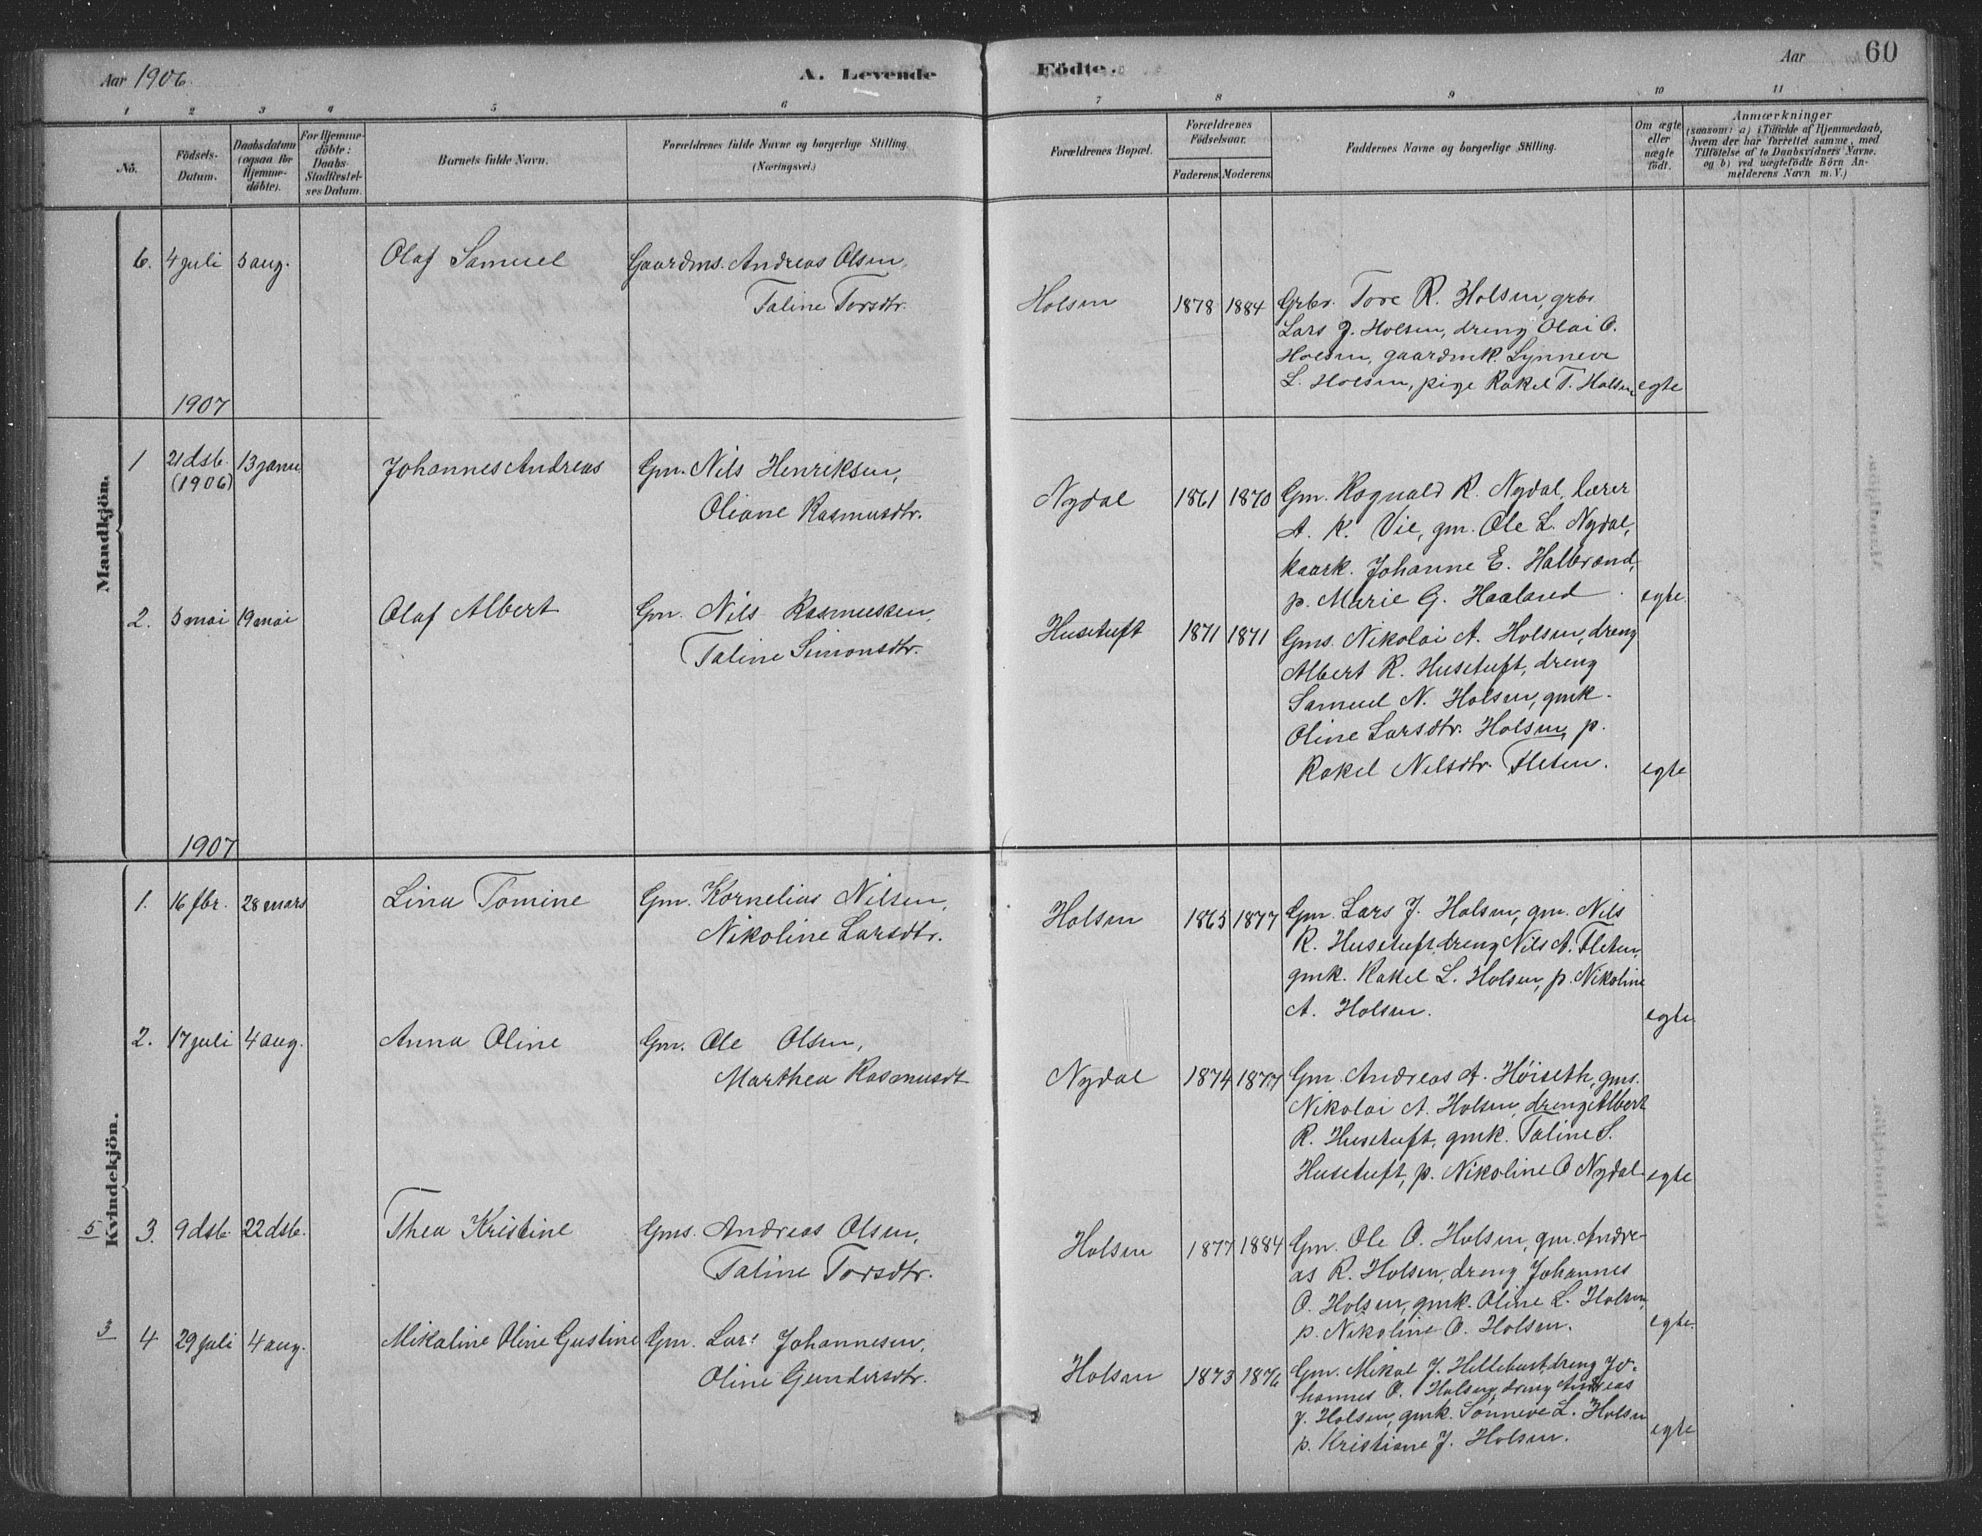 Aar 1906. A. Levende Födte. Aar 60
1 2 3 4 5 6 7 8 9 10 11
No.
Födsels-
Datum.
Daabsdatum
(ogsaa for
Hjemme-
döbte).
For Hjemme-
döbte:
Daabs-
Stadfæstel-
ses Datum.
Barnets fulde Navn.
Forældrenes fulde Navne og borgerlige Stilling.
(Næringsvei.)
Forældrenes Bopæl.
Forældrenes
Födselsaar.
Faderens. Moderens.
Faddernes Navne og borgerlige Stilling.
Om ægte
eller
uægte
födt.
Anmærkninger
(saasom: a) i Tilfælde af Hjemmedaab,
hvem der har forrettet samme, med
Tilföielse af to Daabsvidners Navne,
og b) ved uægtefödte Börn An-
melderens Navn m. V.)
Mandkjön.
6. 4 juli 5 aug. Olaf Samuel Gaardms. Andreas Olsen,
Taline Torsdtr.
Holsen 1878 1884 Grbr. Tore R. Holsen, grbr.
Lars J. Holsen, dreng Olai O.
Holsen, gaardmk. Synneve
L. Holsen, pige Rakel T. Holsen egte
1907
1 21 dsb. (1906) 13 janu Johannes Andreas Gm. Nils Henriksen,
Oliane Rasmusdtr.
Nydal 1861 1870 Gm. Rognald R. Nydal, lærer
A. K. Vie, gm. Ole L. Nydal,
kaark. Johanne E. Halbrend,
p. Marie G. Haaland. egte.
2. 5 mai 19 mai Olaf Albert Gm. Nils Rasmussen,
Taline Simonsdtr.
Husetuft 1871 1871 Gms. Nikolai A. Holsen, dreng
Albert R. Husetuft, dreng
Samuel N. Holsen, gmk.
Oline Larsdtr. Holsen, p.
Rakel Nilsdtr. Fleten. egte
1907
Kvindekjön.
1. 16 fbr. 28 mars Lina Tomine Gm. Kornelius Nilsen,
Nikoline Larsdtr.
Holsen 1865 1877 Gm. Lars J. Holsen, gm. Nils
R. Husetuft, dreng Nils A. Fleten,
gmk. Rakel L. Holsen, p. Nikoline
A. Holsen. egte
2. 17 juli 4 aug. Anna Oline Gm. Ole Olsen,
Marthea Rasmusdt
Nydal 1874 1877 Gm. Andreas A. Høiseth, gms.
Nikolai A. Holsen, dreng Albert
R. Husetuft, gmk. Taline S.
Husetuft, p. Nikoline O Nydal egte
5 3. 9 dsb. 22 dsb. Thea Kristine Gms. Andreas Olsen,
Taline Torsdtr.
Holsen 1877 1884 Gm. Ole O. Holsen, gm. Andre-
as R. Holsen, dreng Johannes
O. Holsen, gmk. Oline L. Holsen,
p. Nikoline O. Holsen. egte.
3 4 29 juli 4 aug. Mikaline Oline Gustine Gm. Lars Johannesen,
Oline Gundersdtr.
Holsen 1873 1876 Gm. Mikal J. Hillebust, dreng Jo-
hannes O. Holsen, dreng Andreas
J. Holsen, gmk. Sønneve L. Holsen
p. Kristiane J. Holsen. egte